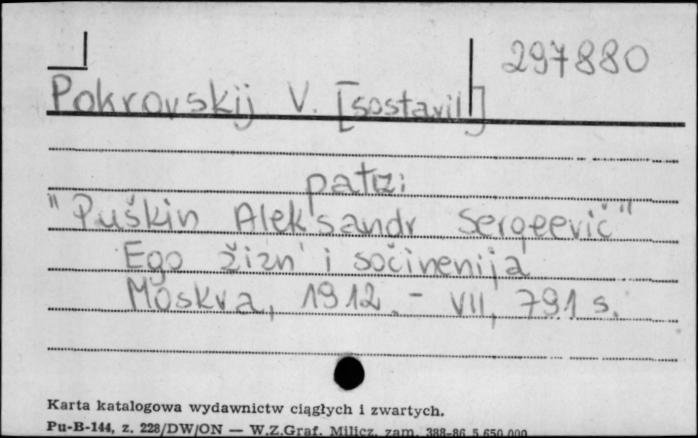 297880
Pokrovskij V. [sostavil]
patrz:
"Puškin Aleksandr Sergeevič"
Ego žizn' i sočinenija
Moskva, 1912. - VII, 791 s.
Karta katalogowa wydawnictw ciągłych i zwartych.
Pu-B-144, z. 228/DW/ON — W.Z.Graf. Milicz, zam. 388-86 5.650.000